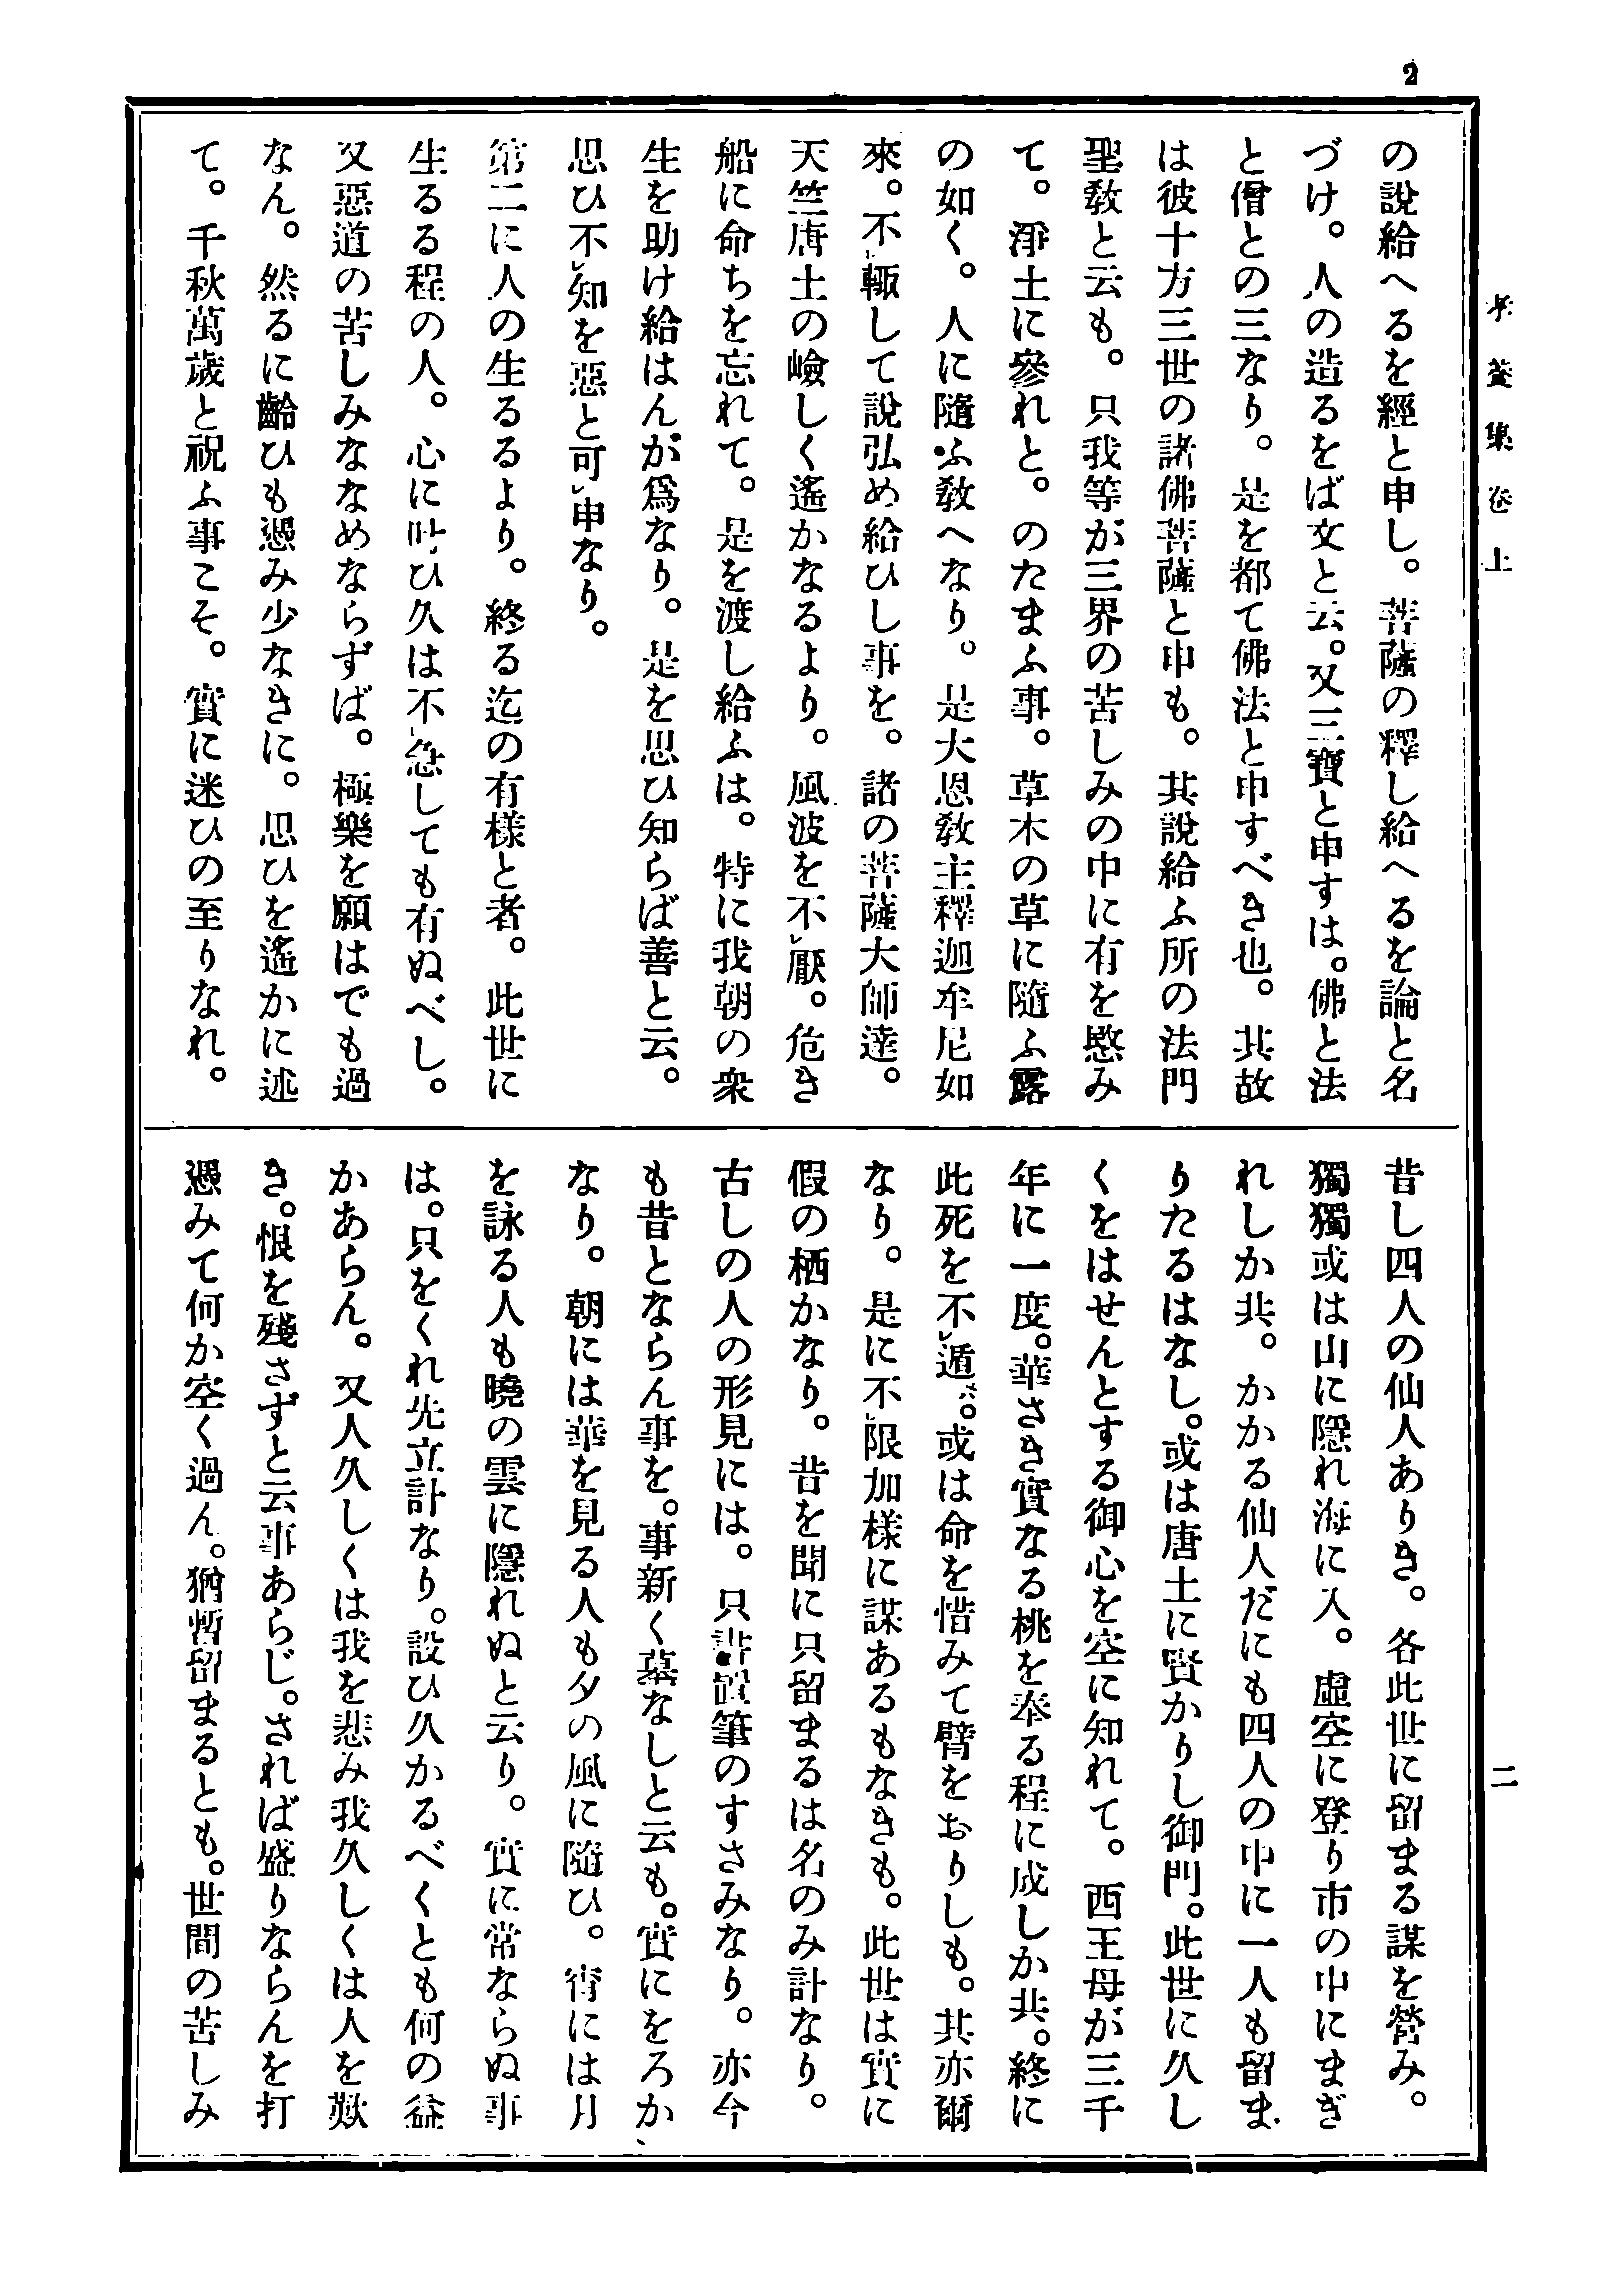 2
孝養集卷上
二
の說給へるを經と申し。菩薩の釋し給へるを論と名
づけ。人の造るをば文と云。又三寶と申すは。佛と法
と僧との三なり。是を都て佛法と申すべき也。其故
は彼十方三世の諸佛菩薩と申も。其說給ふ所の法門
聖敎と云も。只我等が三界の苦しみの中に有を愍み
て。淨土に參れと。のたまふ事。草木の草に隨ふ露
の如く。人に隨ふ敎へなり。是大恩敎主釋迦牟尼如
來。不㆑輙して說弘め給ひし事を。諸の菩薩大師達。
天竺唐土の嶮しく遙かなるより。風波を不㆑厭。危き
船に命ちを忘れて。是を渡し給ふは。特に我朝の衆
生を助け給はんが爲なり。是を思ひ知らば善と云。
思ひ不㆑知を惡と可㆑申なり。
第二に人の生るるより。終る迄の有樣と者。此世に
生る程の人。心に叶ひ久は不㆑怠しても有ぬべし。
又惡道の苦しみななめならずば。極樂を願はでも過
なん。然るに齡ひも憑み少なきに。思ひを遙かに述
て。千秋萬歲と祝ふ事こそ。實に迷ひの至りなれ。
昔し四人の仙人ありき。各此世に留まる謀を營み。
獨獨或は山に隱れ海に入。虛空に登り市の中にまぎ
れしか共。かかる仙人だにも四人の中に一人も留ま
りたるはなし。或は唐土に賢かりし御門。此世に久し
くをはせんとする御心を空に知れて。西王母が三千
年に一度。華さき實なる桃を奉る程に成しか共。終に
此死を不㆑遁さ。或は命を惜みて臂をおりしも。其亦爾
なり。是に不㆑限加樣に謀あるもなきも。此世は實に
假の栖かなり。昔を聞に只留まるは名のみ計なり。
古しの人の形見には。只書置筆のすさみなり。亦今
も昔とならん事を。事新く墓なしと云も。實にをろか
なり。朝には華を見る人も夕の風に隨ひ。宵には月
を詠る人も曉の雲に隱れぬと云り。實に常ならぬ事
は。只をくれ先立計なり。設ひ久かるべくとも何の益
かあらん。又人久しくは我を悲み我久しくは人を歎
き。恨を殘さずと云事あらじ。されば盛りならんを打
憑みて何か空く過ん。猶暫留まるとも。世間の苦しみ